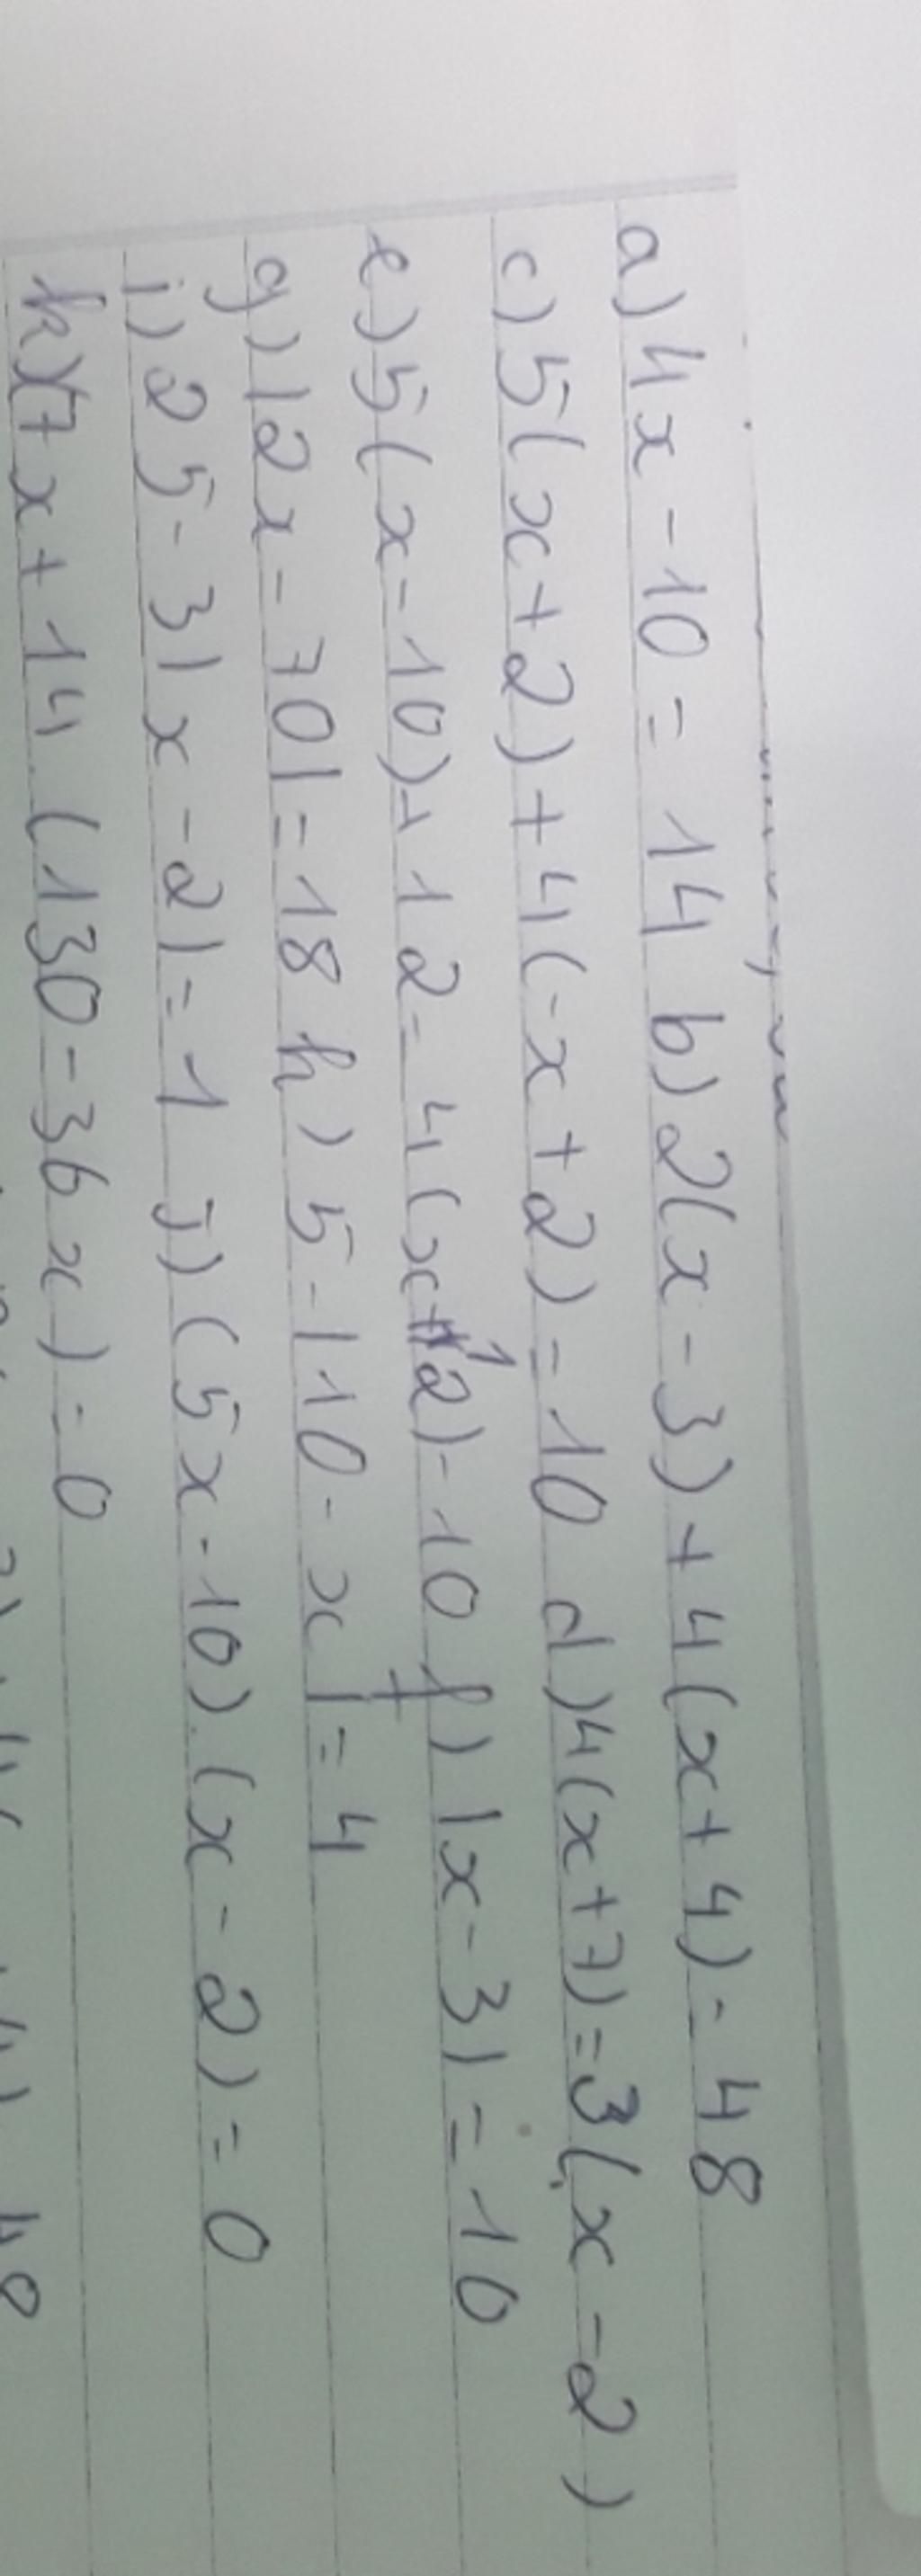 a) 4x - 10 = 14 b) 2(x - 3) + 4(x + 4) = 48
c) 5(x + 2) + 4(-x + 2) = 10 d) 4(x + 7) = 3(x - 2)
e) 5(x - 10) + 12 = 4(x + 12) - 10 f) |x - 3| = 10
g) |2x - 70| = 18 h) 5 - |10 - x| = 4
i) 25 - 3|x - 2| = 1 j) (5x - 10).(x - 2) = 0
k) (7x + 14.(130 - 36x) = 0